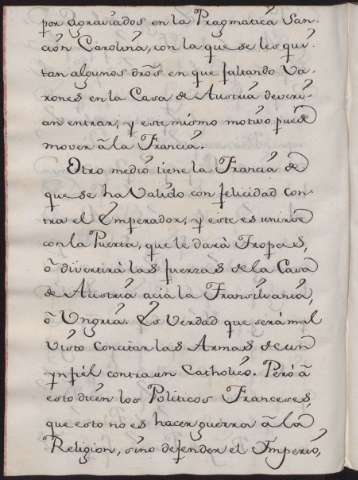 por agraviados en la Pragmatica San-
ción Carolina, con la que se les qui-
tan algunos dros en que faltando Va-
rones en la Casa de Austria deveri-
an entrar; y este mismo motivo puede
mover â la Francia.
Otro medio tiene la Francia de
que se ha Valido con felicidad con-
tra el Emperador; y este es unirse
con la Puerta, que le dará Tropas,
ô divertirá las fuerzas de la Casa
de Austria acia la Transilvania,
ô Ungria. Es Verdad que será mal
Visto conciar las Armas de un
ynfiel contra un Catholico. Pero â
esto dicen los Politicos Franceses,
que esto no es hacer guerra â la
Religion, sino defender el Imperio,